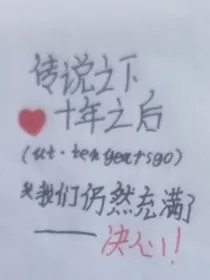 传说之下
十年之后
(ut·tenyearsgo)
我们仍然充满了
——决心!!